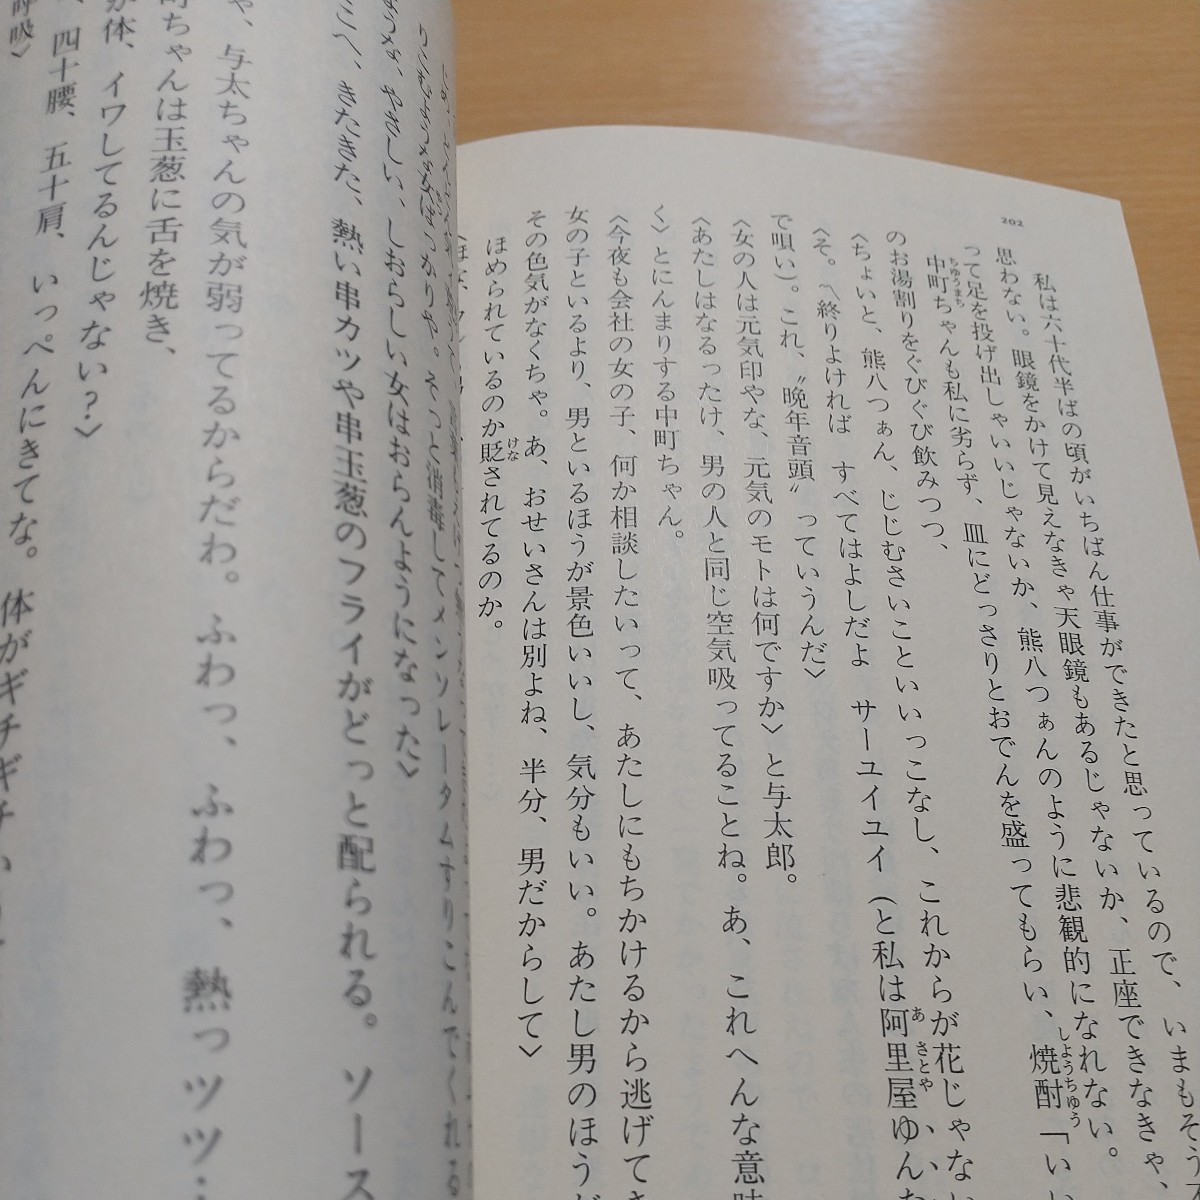 202
私は六十代半ばの頃がいちばん仕事ができたと思っているので、いまもそう
思わない。眼鏡をかけて見えなきゃ天眼鏡もあるじゃないか、正座できなきゃ、
って足を投げ出しゃいいじゃないか、熊八つぁんのように悲観的になれない。
中町ちゃんも私に劣らず、皿にどっさりとおでんを盛ってもらい、焼酎「い
のお湯割りをぐびぐび飲みつつ、
〈ちょいと、熊八つぁん、じじむさいこといいっこなし、これからが花じゃない
〈そ。〽終りよければ すべてはよしだよ サーユイユイ（と私は阿里屋ゆんた
で唄い）。これ、〝晩年音頭〟っていうんだ〉
〈女の人は元気印やな、元気のモトは何ですか〉と与太郎。
〈あたしはなるったけ、男の人と同じ空気吸ってることね。あ、これへんな意味
く〉とにんまりする中町ちゃん。
〈今夜も会社の女の子、何か相談したいって、あたしにもちかけるから逃げてき
女の子といるより、男といるほうが景色いいし、気分もいい。あたし男のほうが
その色気がなくちゃ。あ、おせいさんは別よね、半分、男だからして〉
ほめられているのか貶されてるのか。
りこむような女ばっかりや。そっと消毒してメンソレータムすりこんでくれる
ような、やさしい、しおらしい女はおらんようになった〉
こへ、きたきた、熱い串カツや串玉葱のフライがどっと配られる。ソース
や、与太ちゃんの気が弱ってるからだわ。ふわっ、ふわっ、熱っツツ…
町ちゃんは玉葱に舌を焼き、
が体、イワしてるんじゃない？〉
、四十腰、五十肩、いっぺんにきてな。体がギチギチい
呼吸〉